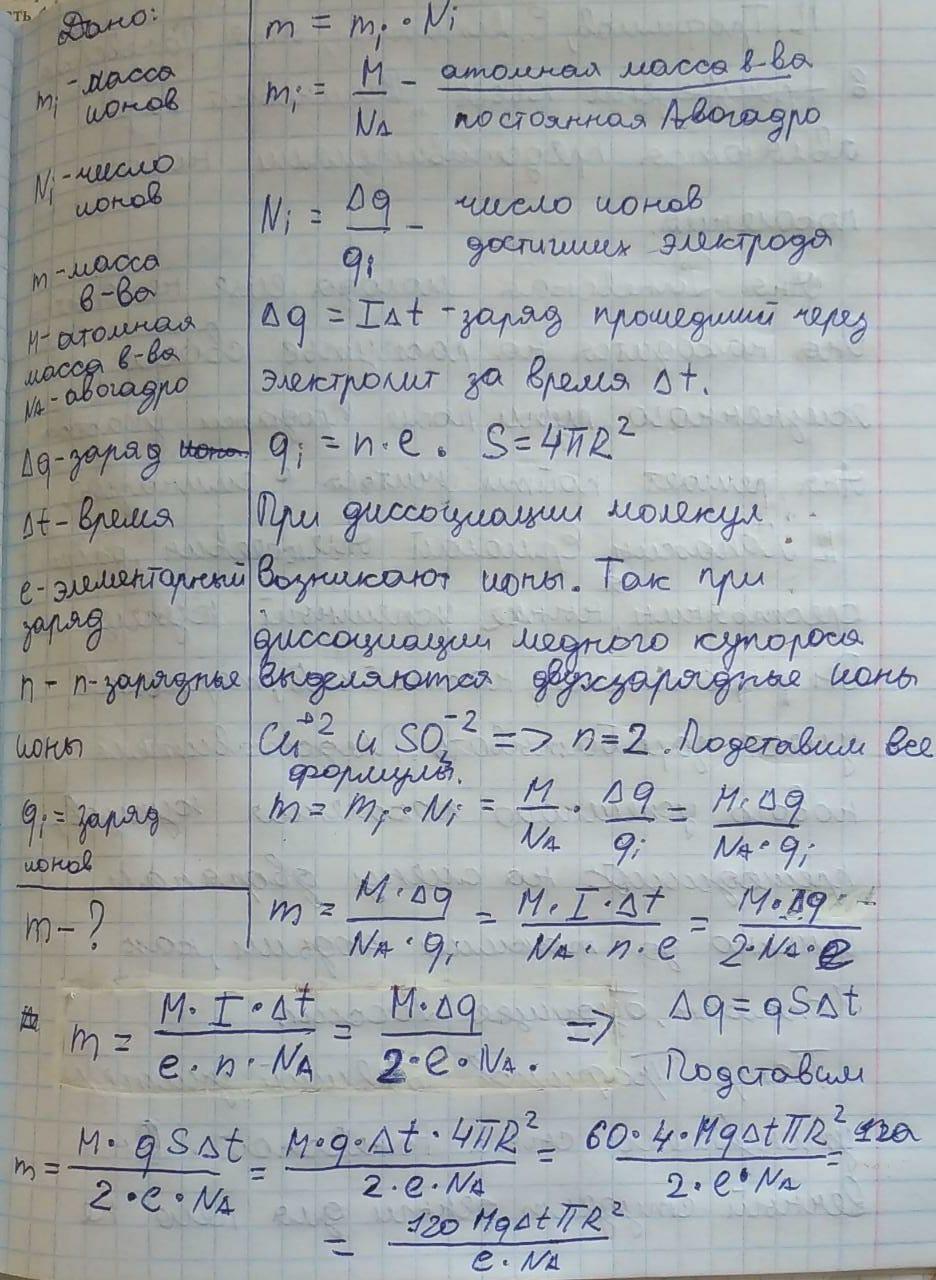 Дано:
mᵢ - масса
ионов
Nᵢ - число
ионов
m - масса
в-ва
M - атомная
масса в-ва
NA - авогадро
Δq - заряд
Δt - время
e - элементарный
заряд
n - n-зарядные
ионы
qᵢ = заряд
ионов
m - ?
m = mᵢ · Nᵢ
mᵢ = M/NA - атомная масса в-ва
постоянная Авогадро
Nᵢ = Δq/qᵢ - число ионов
достигших электрода
Δq = IΔt - заряд прошедший через
электролит за время Δt.
qᵢ = n·e. S = 4πR²
При диссоциации молекул
возникают ионы. Так при
диссоциации медного купороса
выделяются двухзарядные ионы
Cu⁺² и SO₄⁻² => n=2. Подставим все
формулы.
m = mᵢ · Nᵢ = M/NA · Δq/qᵢ = M·Δq/NA·qᵢ
m = M·Δq/NA·qᵢ = M·I·Δt/NA·n·e = M·Δq/2·NA·e
m = M·I·Δt/e·n·NA = M·Δq/2·e·NA. => Δq = qSΔt
Подставим
m = M·qSΔt/2·e·NA = M·q·Δt·4πR²/2·e·NA = 60·4·MqΔtπR²/2·e·NA =
= 120MqΔtπR²/e·NA